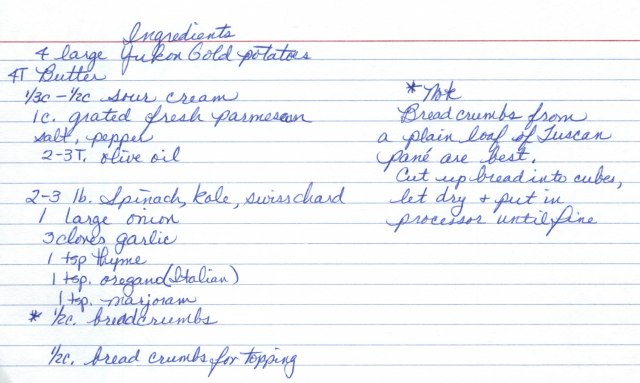 Ingredients
4 large Yukon Gold potatoes
4T Butter
1/3c - 1/2c sour cream
1c. grated fresh parmesean
salt, pepper
2-3T. olive oil
2-3 lb. Spinach, kale, swisschard
1 large onion
3 cloves garlic
1 tsp thyme
1 tsp. oregano (Italian)
1 tsp. marjoram
* 1/2c. breadcrumbs
1/2c. bread crumbs for topping
* Note
Breadcrumbs from
a plain loaf of Tuscan
pané are best.
Cut up bread into cubes,
let dry + put in
processor until fine